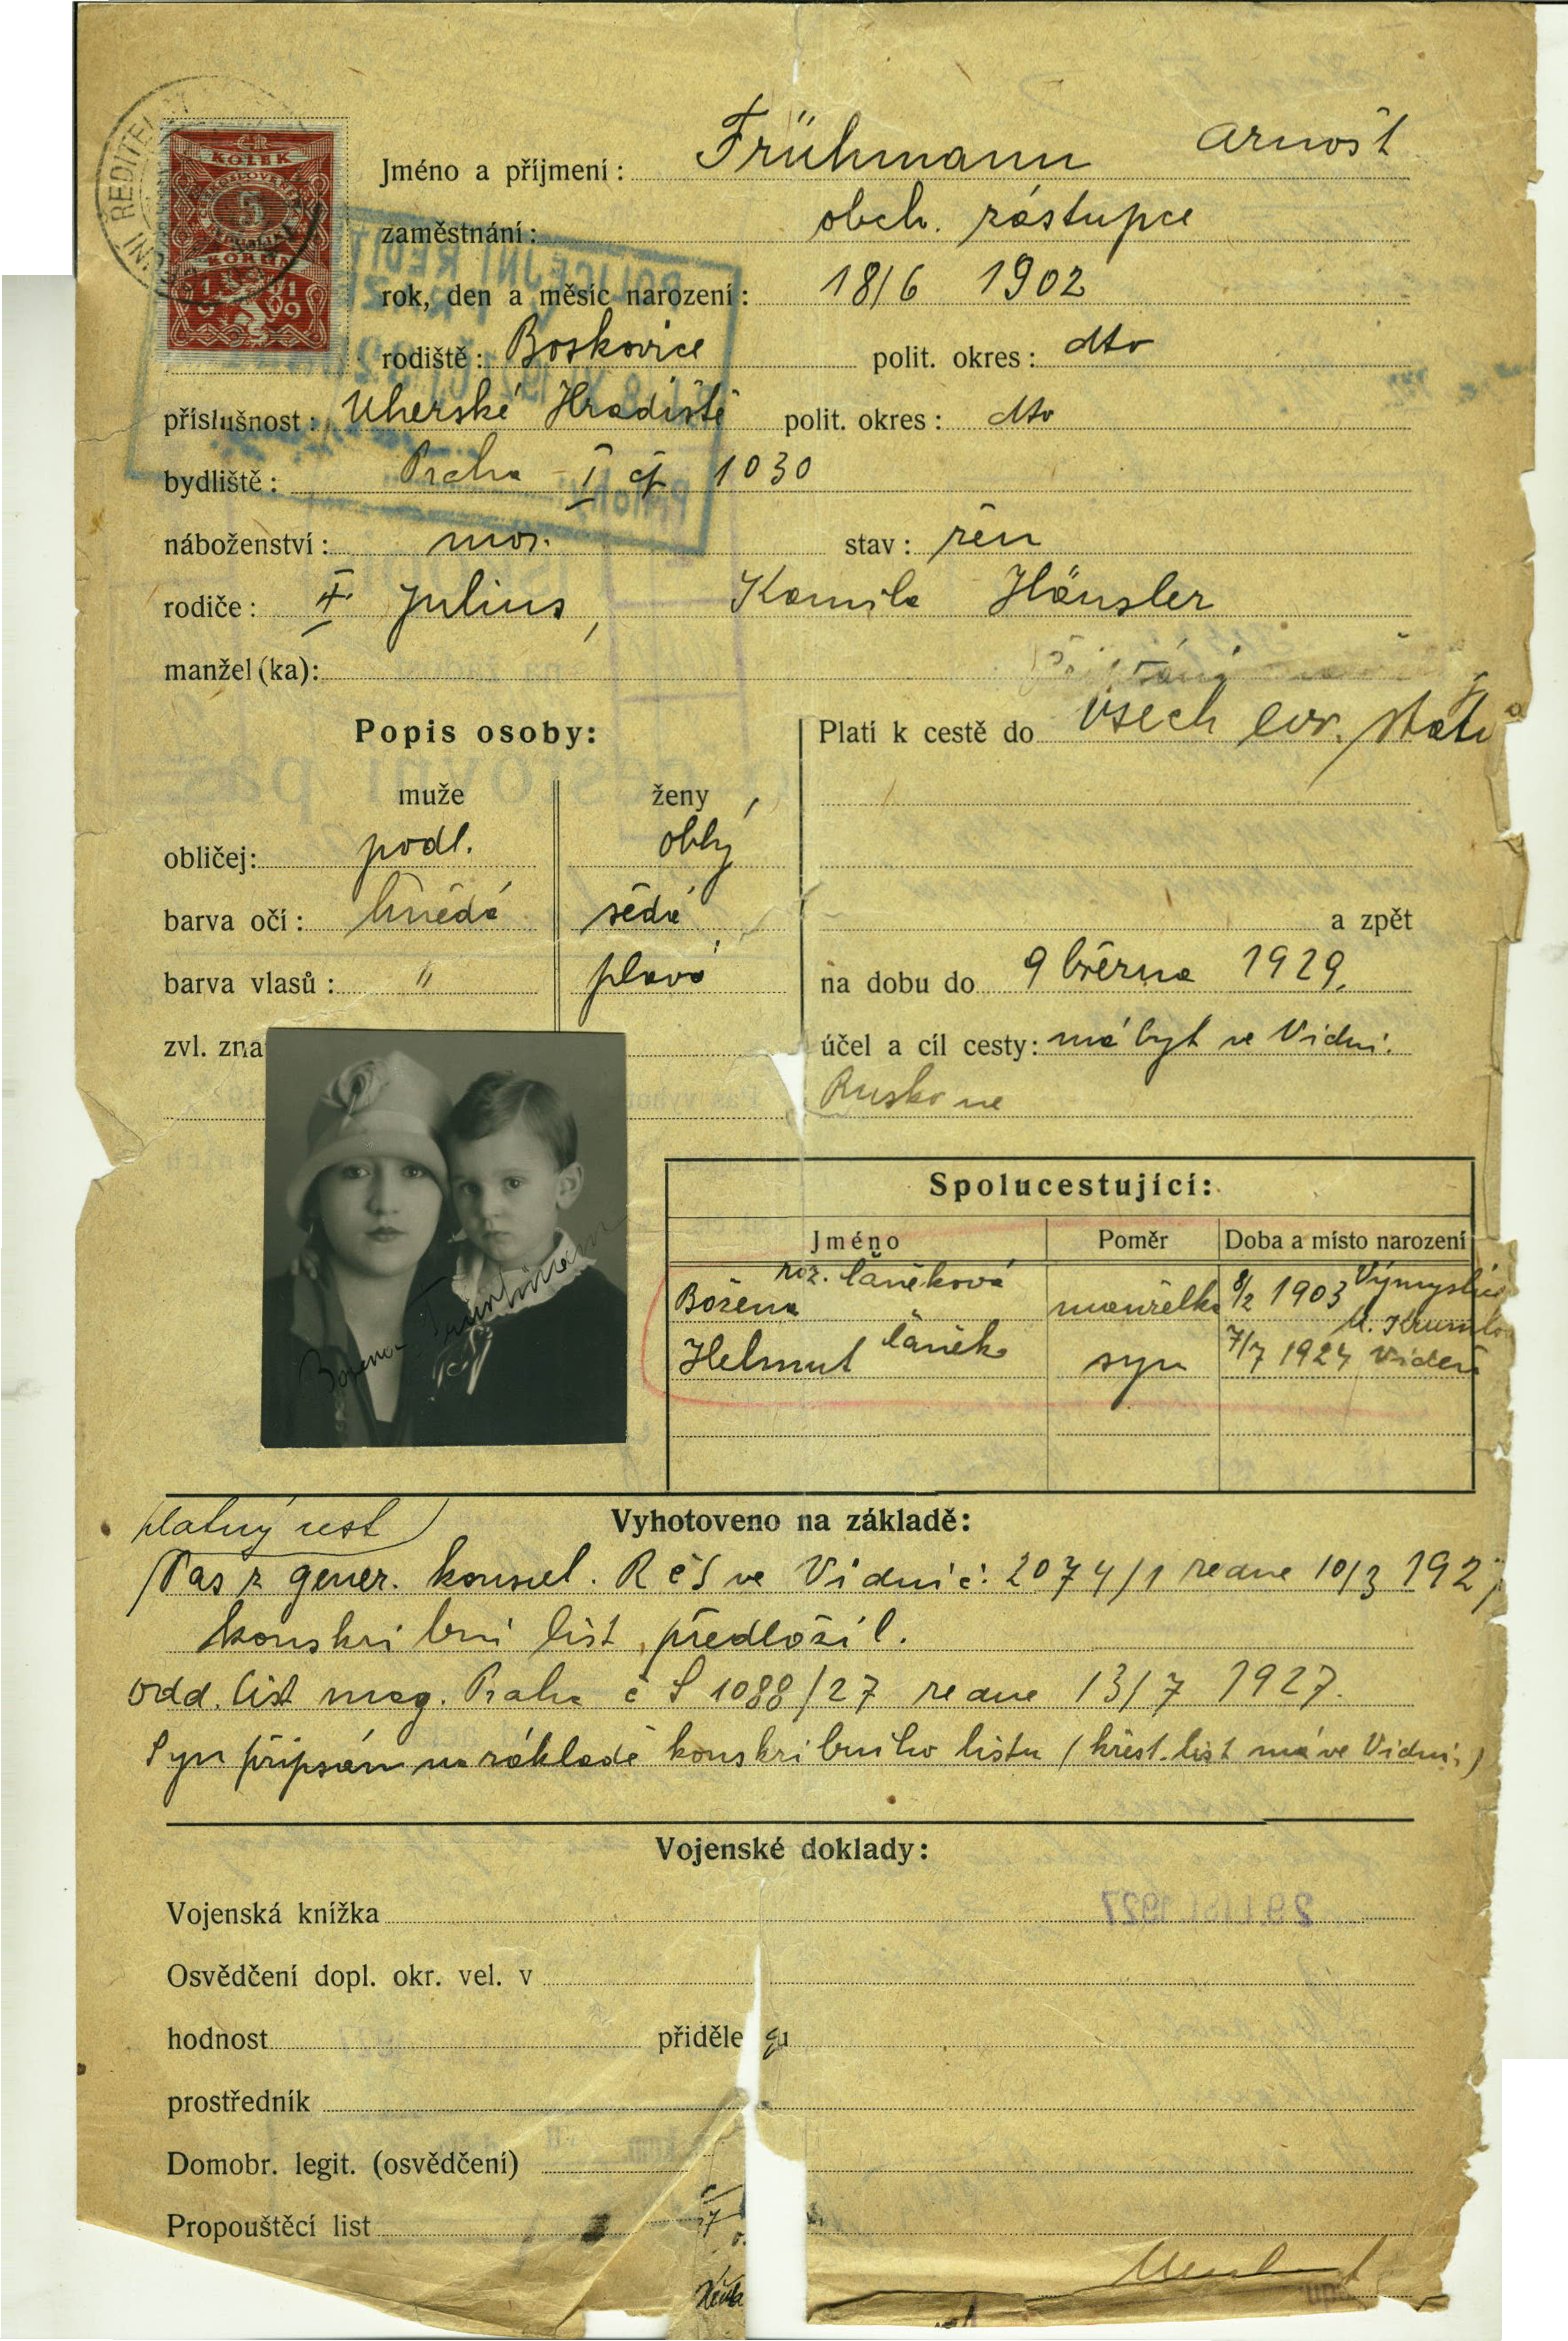 ČR
KOLEK
5
1919
Jméno a příjmení: Frühmann Arnošt
zaměstnání: obch. zástupce
rok, den a měsíc narození: 18/6 1902
rodiště: Boskovice polit. okres: dto
příslušnost: Uherské Hradiště polit. okres: dto
bydliště: Praha I čp 1030
náboženství: mos. stav: žen
rodiče: Julius, Kamila Hänsler
manžel(ka):
Popis osoby:
muže ženy
obličej: podl. oblý
barva očí: hnědá šedá
barva vlasů: " plavá
zvl. zna
Platí k cestě do všech evr. států
a zpět
na dobu do 9 března 1929.
účel a cíl cesty: má byt ve Vídni.
Rusko ne
Spolucestující:
Jméno Poměr Doba a místo narození
Božena roz. Čáňková manželka 8/2 1903 M. Krumlo
Helmut Čáněk syn 7/7 1924 Vídeň
Božena
platný cest
Vyhotoveno na základě:
Pas z gener. konsul. RčS ve Vídni č: 2074/1 ze dne 10/3 1927
konskribní list předložil.
odd. list mag. Praha č S 1088/27 ze dne 13/7 1927.
Syn připsán na základě konskribního listu (křest. list má ve Vídni)
Vojenské doklady:
Vojenská knížka
Osvědčení dopl. okr. vel. v
hodnost přiděle
prostředník
Domobr. legit. (osvědčení)
Propouštěcí list